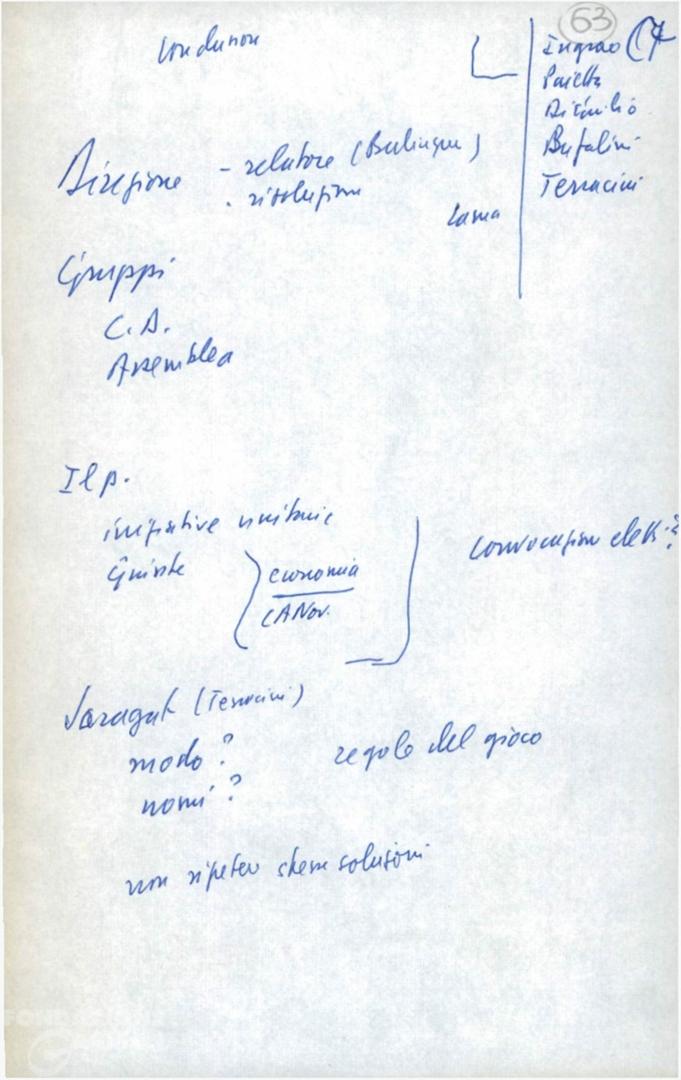 63
conclusioni
Ingrao
Paietta
Di Giulio
Bufalini
Terracini
Direzione - relatore (Berlinguer)
- risoluzione
Lama
Gruppi
C.D.
Assemblea
Il p.
iniziative unitarie
Giunte
economia
Convocazione
Saragat (Terracini)
modo?
regole del gioco
nomi?
non ripetere stesse soluzioni